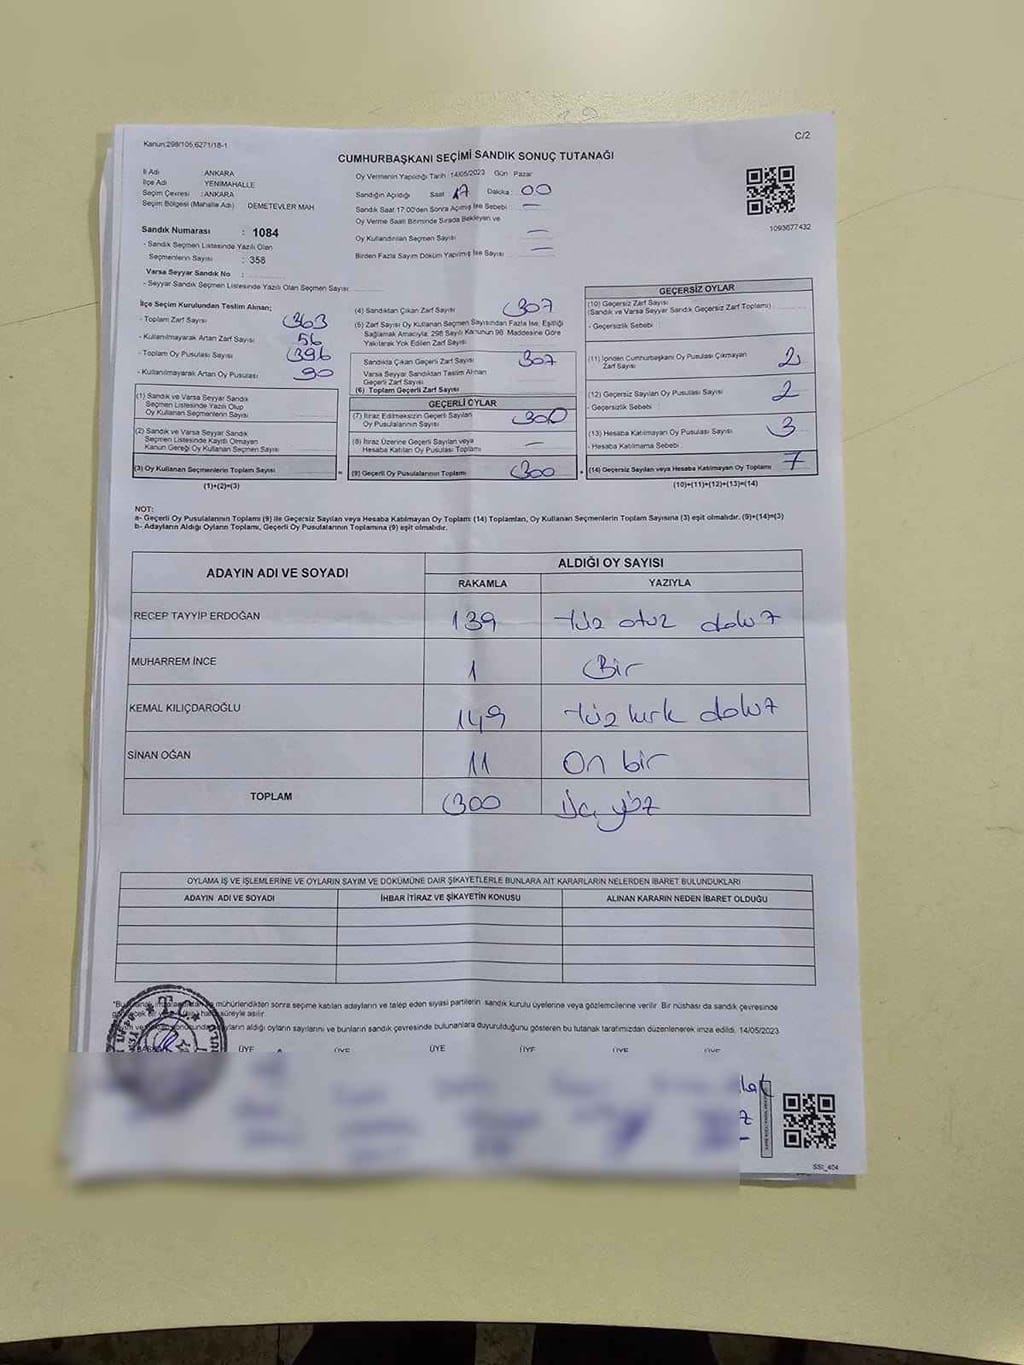 C/2
Kanun:298/105,6271/18-1
CUMHURBAŞKANI SEÇİMİ SANDIK SONUÇ TUTANAĞI
İl Adı ANKARA
İlçe Adı YENİMAHALLE
Seçim Çevresi : ANKARA
Seçim Bölgesi (Mahalle Adı) DEMETEVLER MAH
Sandık Numarası : 1084
- Sandık Seçmen Listesinde Yazılı Olan
Seçmenlerin Sayısı : 358
Varsa Seyyar Sandık No :
- Seyyar Sandık Seçmen Listesinde Yazılı Olan Seçmen Sayısı:
Oy Vermenin Yapıldığı Tarih 14/05/2023 Gün Pazar
Sandığın Açıldığı Saat 17 Dakika : 00
Sandık Saat 17:00'den Sonra Açılmış İse Sebebi : —
Oy Verme Saati Bitiminde Sırada Bekleyen ve
Oy Kullandırılan Seçmen Sayısı : —
Birden Fazla Sayım Döküm Yapılmış İse Sayısı : —
1093677432
İlçe Seçim Kurulundan Teslim Alınan;
- Toplam Zarf Sayısı 363
- Kullanılmayarak Artan Zarf Sayısı 56
- Toplam Oy Pusulası Sayısı 396
- Kullanılmayarak Artan Oy Pusulası 90
(1) Sandık ve Varsa Seyyar Sandık
Seçmen Listesinde Yazılı Olup
Oy Kullanan Seçmenlerin Sayısı
(2) Sandık ve Varsa Seyyar Sandık
Seçmen Listesinde Kayıtlı Olmayan
Kanun Gereği Oy Kullanan Seçmen Sayısı
(3) Oy Kullanan Seçmenlerin Toplam Sayısı
(1)+(2)=(3)
(4) Sandıktan Çıkan Zarf Sayısı 307
(5) Zarf Sayısı Oy Kullanan Seçmen Sayısından Fazla İse, Eşitliği
Sağlamak Amacıyla; 298 Sayılı Kanunun 98. Maddesine Göre
Yakılarak Yok Edilen Zarf Sayısı
Sandıkta Çıkan Geçerli Zarf Sayısı 307
Varsa Seyyar Sandıktan Teslim Alınan
Geçerli Zarf Sayısı
(6) Toplam Geçerli Zarf Sayısı
GEÇERLİ OYLAR
(7) İtiraz Edilmeksizin Geçerli Sayılan
Oy Pusulalarının Sayısı 300
(8) İtiraz Üzerine Geçerli Sayılan veya
Hesaba Katılan Oy Pusulası Toplamı —
(9) Geçerli Oy Pusulalarının Toplamı 300
GEÇERSİZ OYLAR
(10) Geçersiz Zarf Sayısı
(Sandık ve Varsa Seyyar Sandık Geçersiz Zarf Toplamı)
- Geçersizlik Sebebi
(11) İçinden Cumhurbaşkanı Oy Pusulası Çıkmayan
Zarf Sayısı 2
(12) Geçersiz Sayılan Oy Pusulası Sayısı 2
- Geçersizlik Sebebi
(13) Hesaba Katılmayan Oy Pusulası Sayısı 3
- Hesaba Katılmama Sebebi
(14) Geçersiz Sayılan veya Hesaba Katılmayan Oy Toplamı 7
(10)+(11)+(12)+(13)=(14)
NOT:
a- Geçerli Oy Pusulalarının Toplamı (9) ile Geçersiz Sayılan veya Hesaba Katılmayan Oy Toplamı (14) Toplamları, Oy Kullanan Seçmenlerin Toplam Sayısına (3) eşit olmalıdır. (9)+(14)=(3)
b- Adayların Aldığı Oyların Toplamı, Geçerli Oy Pusulalarının Toplamına (9) eşit olmalıdır.
ADAYIN ADI VE SOYADI ALDIĞI OY SAYISI
RAKAMLA YAZIYLA
RECEP TAYYİP ERDOĞAN 139 Yüz otuz dokuz
MUHARREM İNCE 1 Bir
KEMAL KILIÇDAROĞLU 149 Yüz kırk dokuz
SİNAN OĞAN 11 On bir
TOPLAM 300 Üç yüz
OYLAMA İŞ VE İŞLEMLERİNE VE OYLARIN SAYIM VE DÖKÜMÜNE DAİR ŞİKAYETLERLE BUNLARA AİT KARARLARIN NELERDEN İBARET BULUNDUKLARI
ADAYIN ADI VE SOYADI İHBAR İTİRAZ VE ŞİKAYETİN KONUSU ALINAN KARARIN NEDEN İBARET OLDUĞU
mühürlendikten sonra seçime katılan adayların ve talep eden siyasi partilerin sandık kurulu üyelerine veya gözlemcilerine verilir. Bir nüshası da sandık çevresinde
süreyle asılır.
aldığı oyların sayılarını ve bunların sandık çevresinde bulunanlara duyurulduğunu gösteren bu tutanak tarafımızdan düzenlenerek imza edildi. 14/05/2023
ÜYE ÜYE ÜYE ÜYE ÜYE ÜYE
SSİ_404